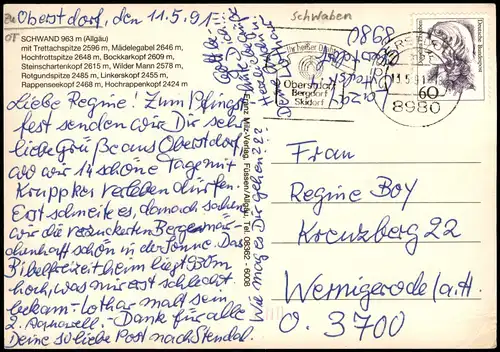 Oberstdorf, den 11.5.91-
Schwaben
SCHWAND 963 m (Allgäu)
mit Trettachspitze 2596 m, Mädelegabel 2646 m,
Hochfrottspitze 2648 m, Bockkarkopf 2609 m,
Steinschartenkopf 2615 m, Wilder Mann 2578 m,
Rotgundspitze 2485 m, Linkerskopf 2455 m,
Rappenseekopf 2468 m, Hochrappenkopf 2424 m
Liebe Regine! Zum Pfingst-
fest senden wir Dir sehr
liebe Grüße aus Oberstdorf,
wo wir 14 schöne Tage mit
verleben dürfen.
Erst schneite es, danach sahen
wir die verzuckerten Bergemär-
chenhaft schön in der Sonne. Das
Bibelfreizeitheim liegt 930m
hoch, was mir erst schlecht
bekam - Lothar malt sein
2. Aquarell. - Dank für alle
Deine so liebe Post nach Stendal.
Wie mag es Dir gehen???
Franz Milz-Verlag, Füssen/Allgäu, Tel. 08362 - 6008
Ihr heißer
Oberstdorf
Bergdorf
Skidorf
8980
Deutsche Bundespost
60
Frau
Regine Boy
Kreuzberg 22
Wernigerode (a.H.
O. 3700